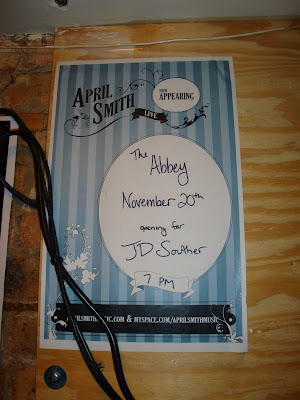 APRIL
SMITH
LIVE
NOW
APPEARING
The
Abbey
November 20th
opening for
JD Souther
7 PM
.COM & MYSPACE.COM/APRILSMITHMUSIC